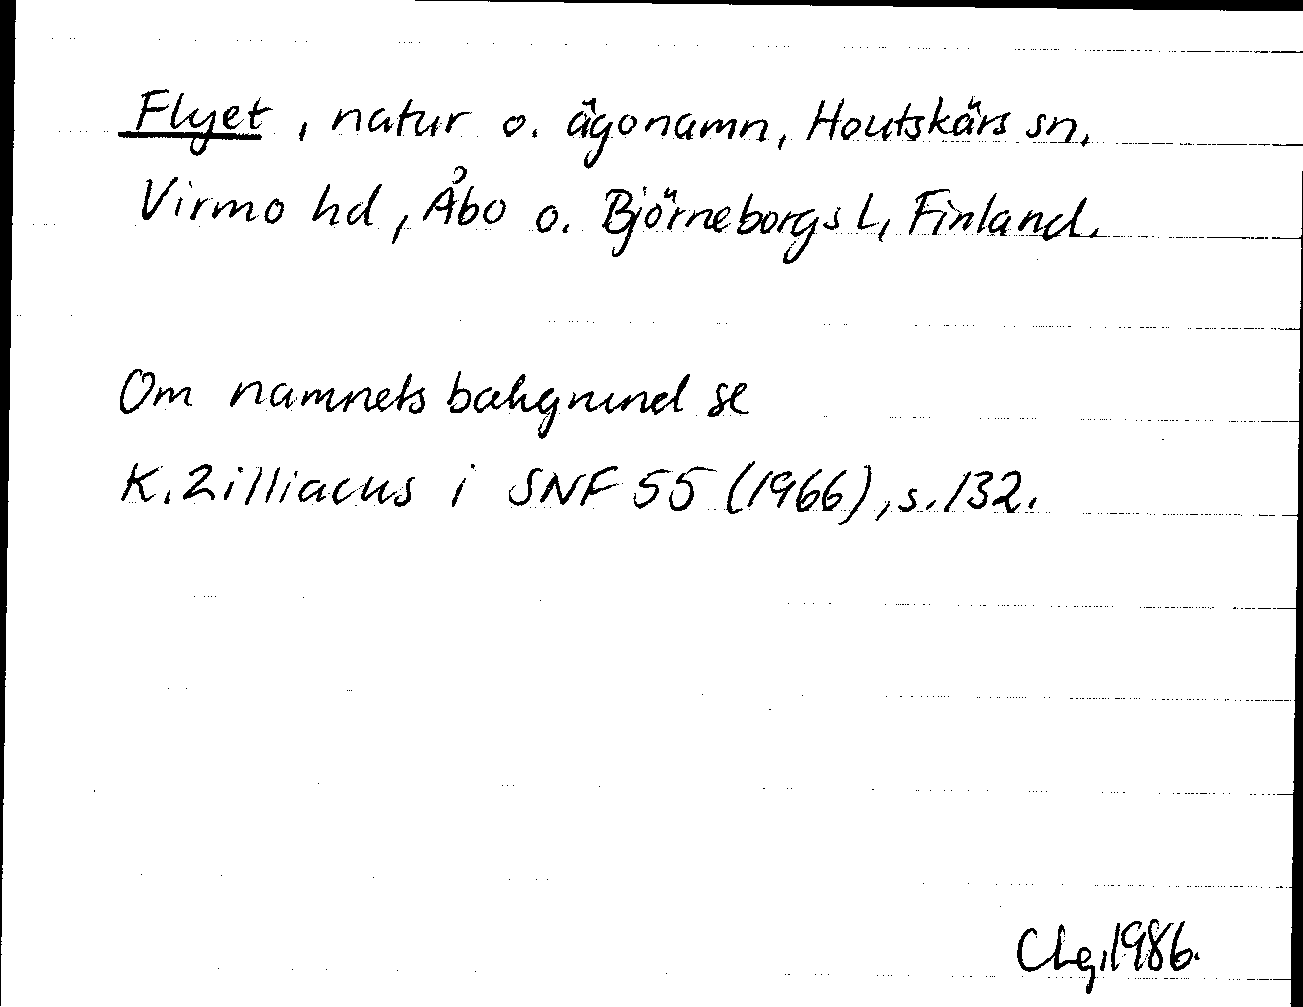 Flyet, natur o. ägonamn, Houtskärs sn,
Virmo hd, Åbo o. Björneborgs L, Finland.
Om namnets bakgrund se
K. Zilliacus i SNF 55 (1966), s. 132.
CLg, 1986.